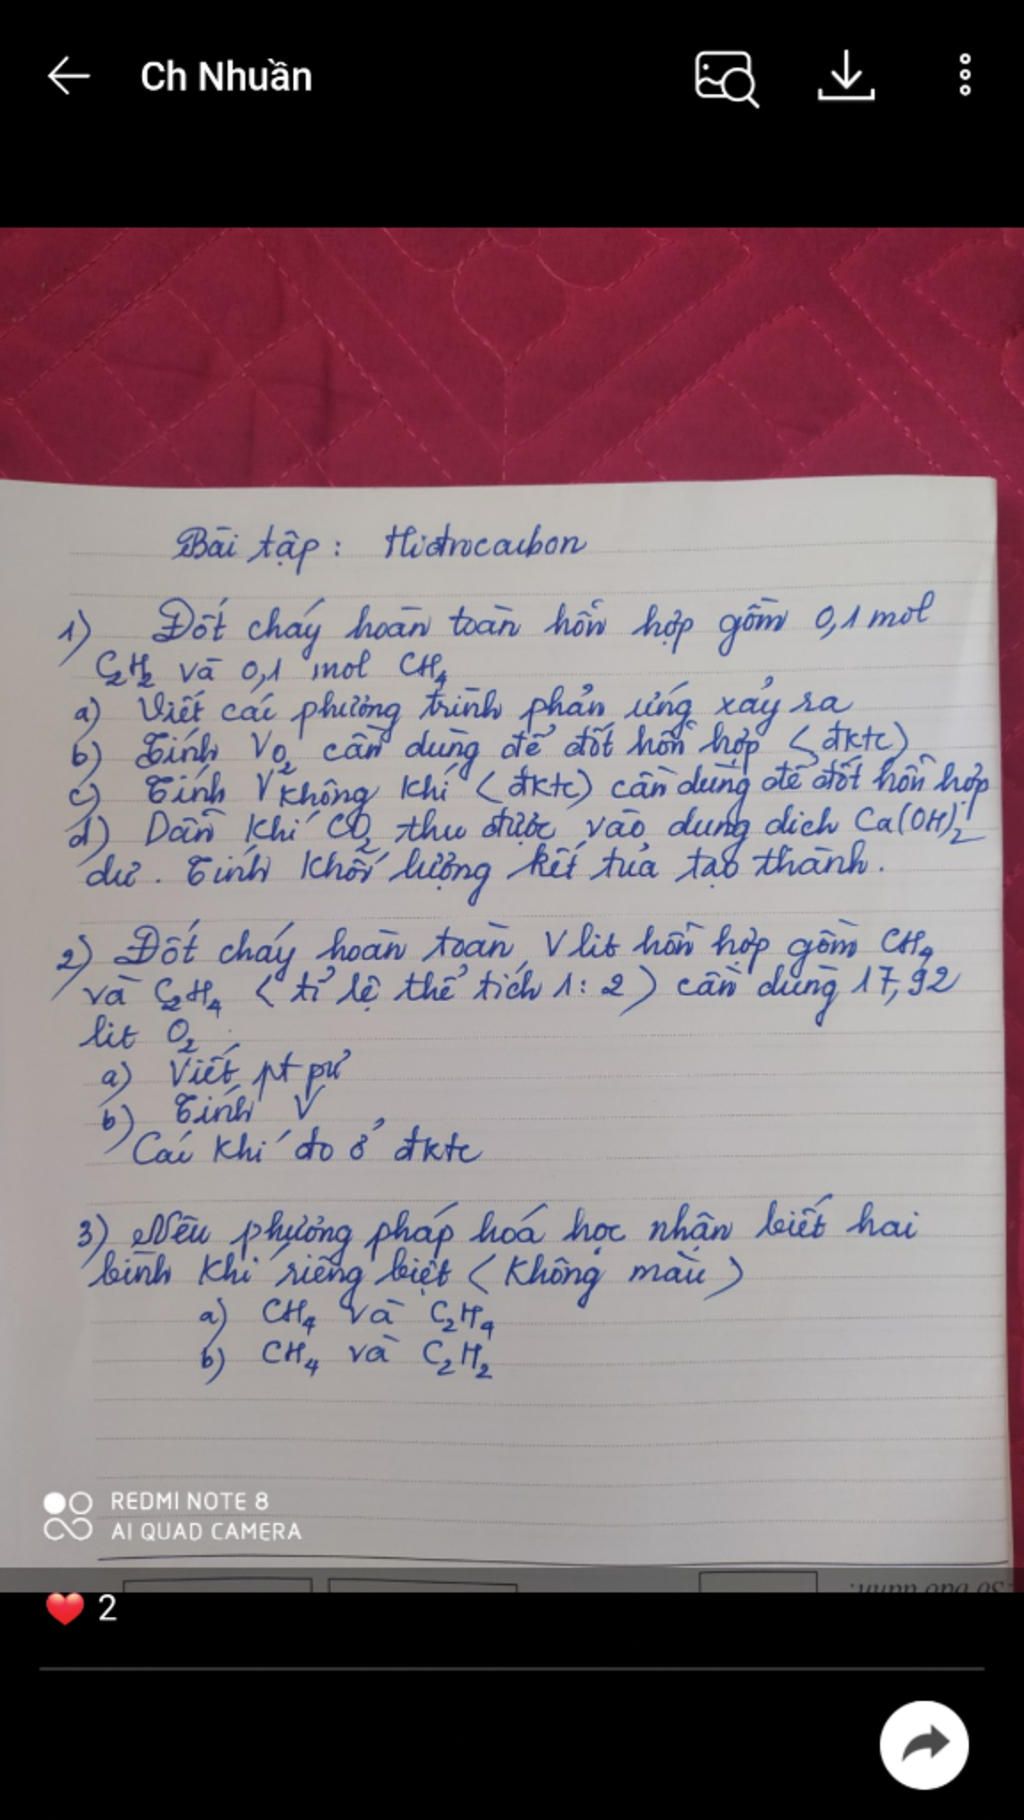 Ch Nhuần
Bài tập : Hiđrocacbon
1) Đốt cháy hoàn toàn hỗn hợp gồm 0,1 mol
C₂H₂ và 0,1 mol CH₄
a) Viết các phương trình phản ứng xảy ra
b) Tính V O₂ cần dùng để đốt hỗn hợp (đktc)
c) Tính V không khí (đktc) cần dùng để đốt hỗn hợp
d) Dẫn khí CO₂ thu được vào dung dịch Ca(OH)₂
dư. Tính khối lượng kết tủa tạo thành.
2) Đốt cháy hoàn toàn V lít hỗn hợp gồm CH₄
và C₂H₄ (tỉ lệ thể tích 1 : 2) cần dùng 17,92
lit O₂
a) Viết pt pư
b) Tính V
Các khí đo ở đktc
3) Nêu phương pháp hoá học nhận biết hai
bình khí riêng biệt (không màu)
a) CH₄ và C₂H₄
b) CH₄ và C₂H₂
REDMI NOTE 8
AI QUAD CAMERA
Số báo danh:
2